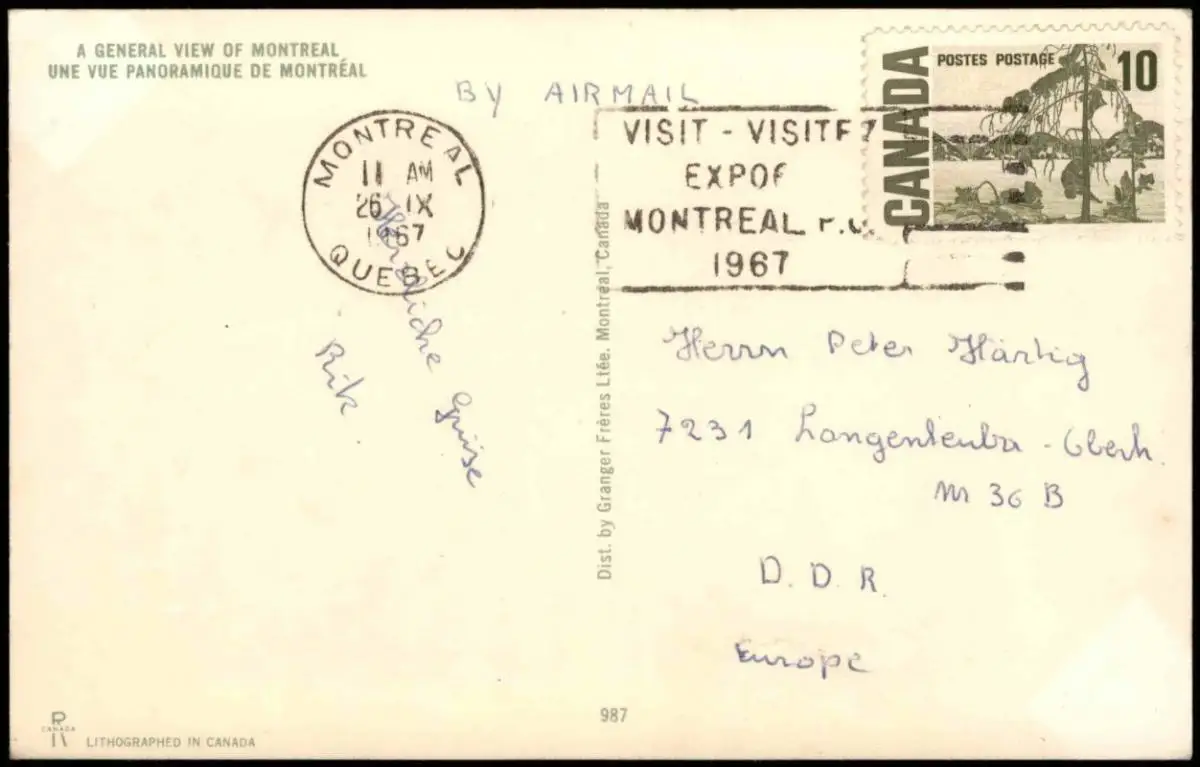 A GENERAL VIEW OF MONTREAL
UNE VUE PANORAMIQUE DE MONTRÉAL
BY AIRMAIL
MONTREAL
11 AM
26 IX
1967
QUEBEC
VISIT - VISITEZ
EXPO
MONTREAL P.Q.
1967
CANADA
POSTES POSTAGE
10
Herzliche Grüsse
Rik
Dist. by Granger Frères Ltée. Montréal, Canada
Herrn Peter Härtig
7231 - Oberh.
36 B
D. D. R.
Europe
987
CANADA
LITHOGRAPHED IN CANADA